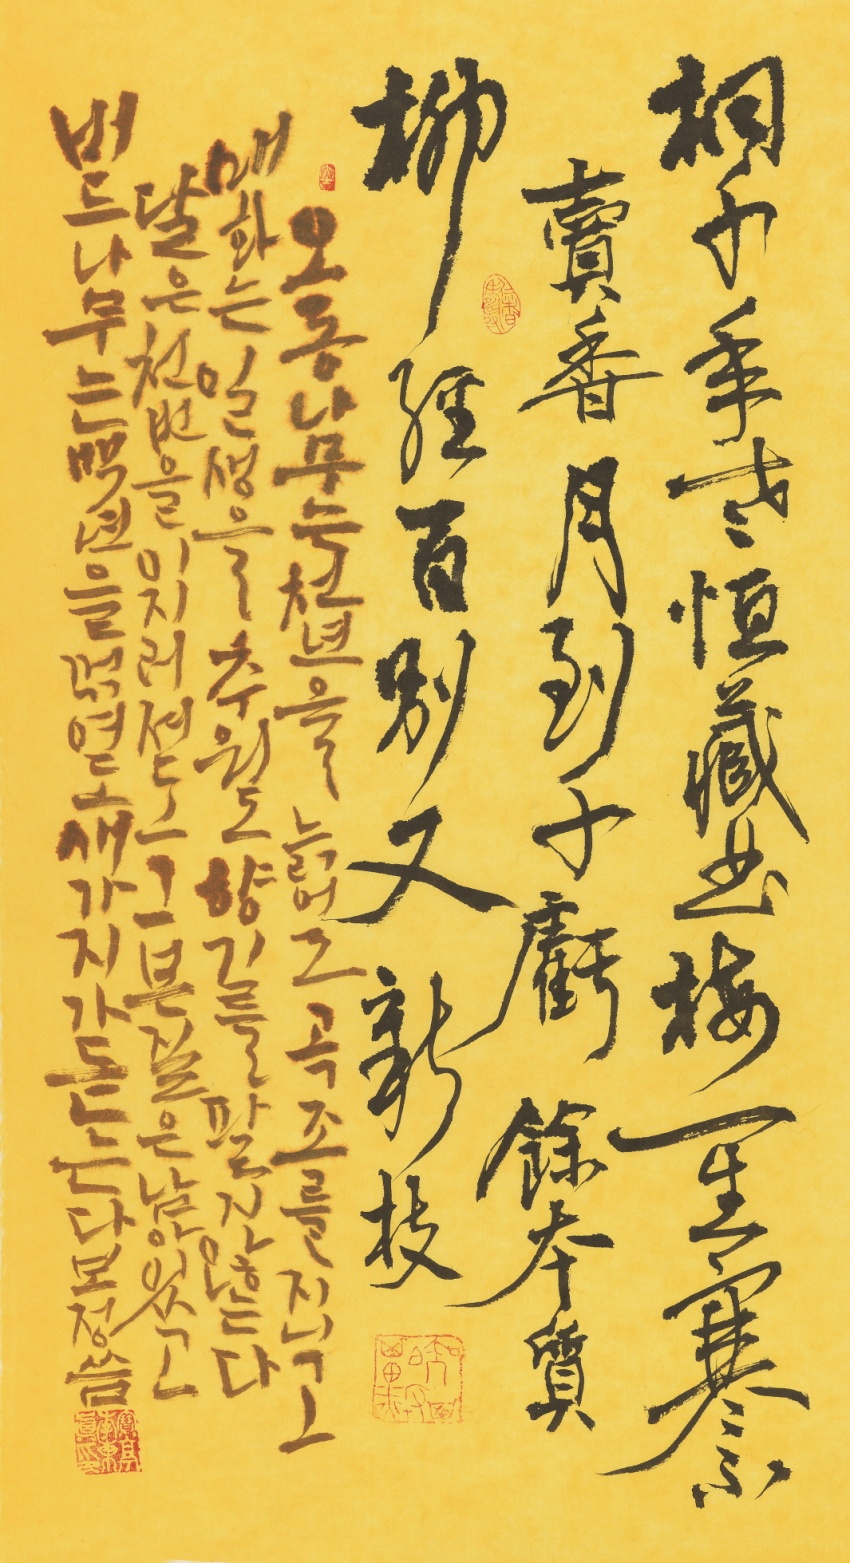 桐千年老恒藏曲梅一生寒不
賣香月到千虧餘本質
柳經百別又新枝
오동나무는천년을 늙어도 곡조를지니고
매화는일생을 추워도 향기를팔지않는다
달은천번을이지러져도 그본질은남았있고
버드나무는백년을꺾여도 새가지가돋는다보정씀